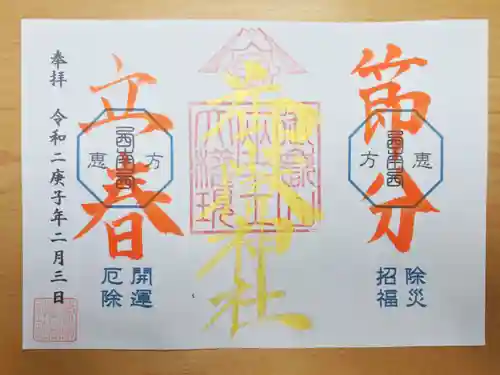 節分
恵方
西南西
除災
招福
神社
立春
恵方
西南西
開運
厄除
奉拝 令和二庚子年二月三日